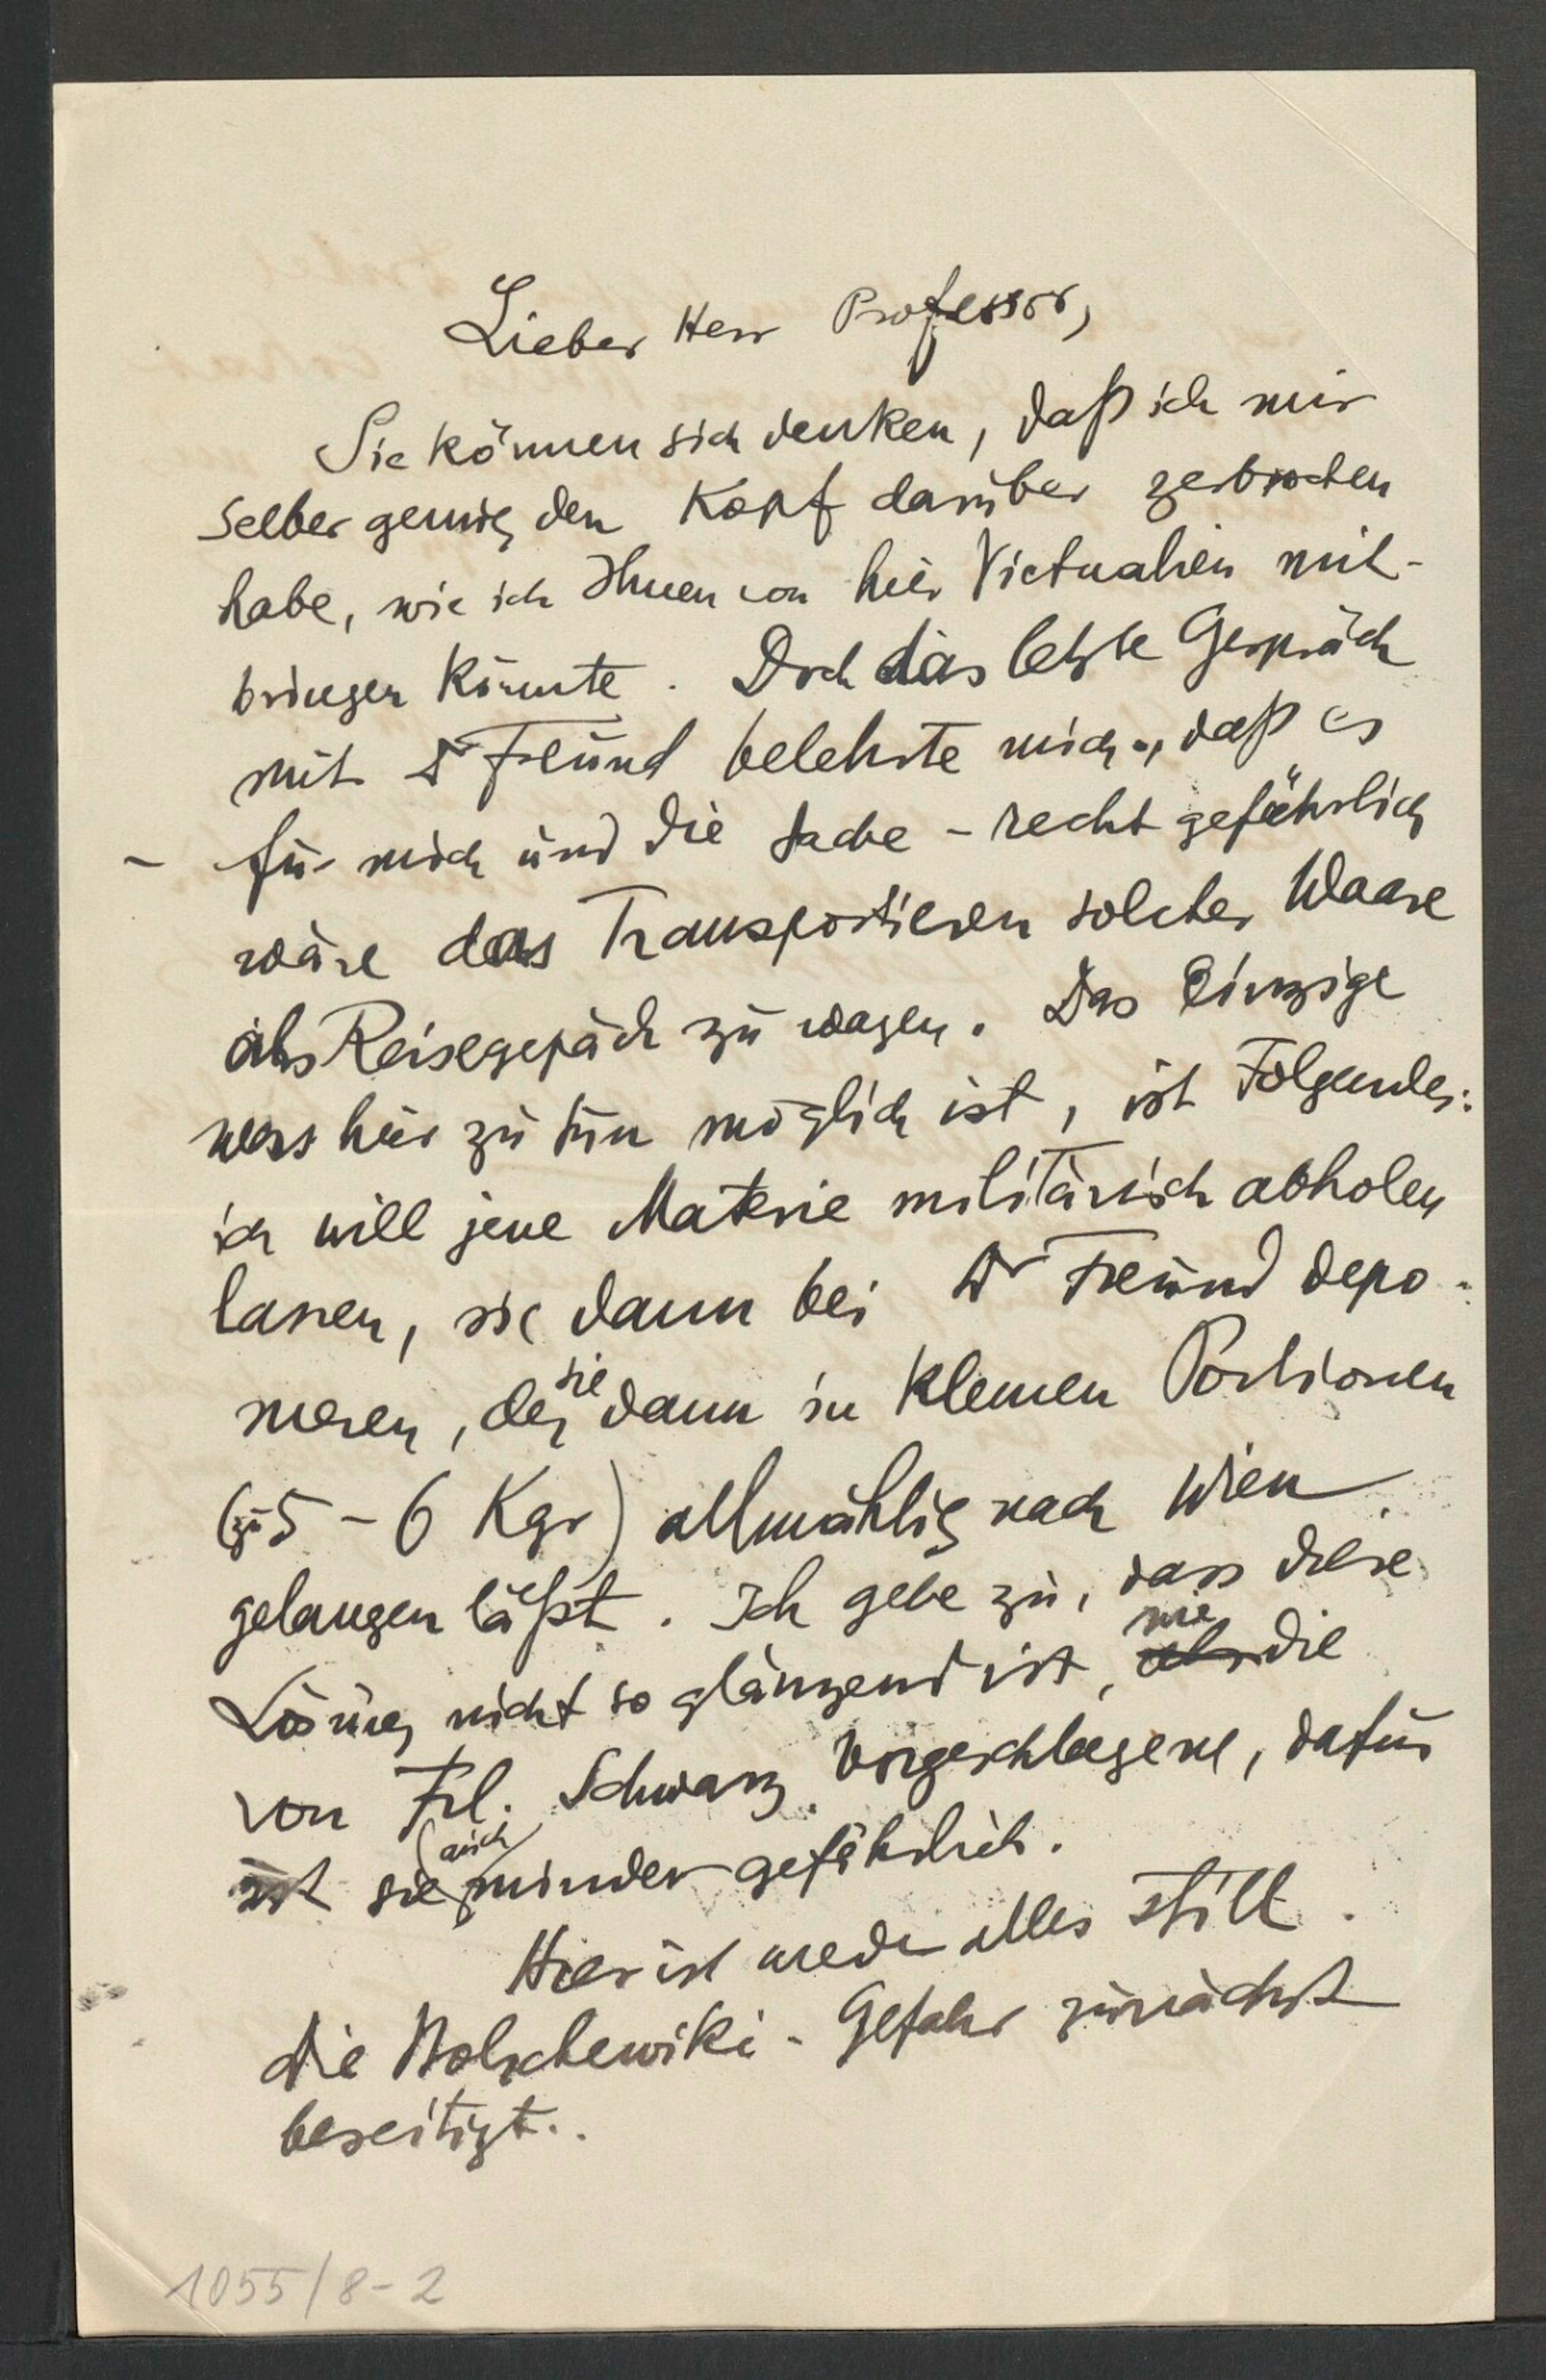 Lieber Herr Professor,
Sie können sich denken, daß ich mir
selber genug den Kopf darüber zerbrochen
habe, wie ich Ihnen von hier Victualien mit-
bringen könnte. Doch das letzte Gespräch
mit Dr Freund belehrte mich, daß es
- für mich und die Sache - recht gefährlich
wäre das Transportieren solcher Waare
als Reisegepäck zu wagen. Das Einzige
was hier zu tun möglich ist, ist Folgendes:
ich will jene Materie militärisch abholen
lassen, sie dann bei Dr Freund depo-
nieren, der sie dann in kleinen Portionen
(zu 5 - 6 Kgr) allmählig nach Wien
gelangen läßt. Ich gebe zu, dass diese
Lösung nicht so glänzend ist, wie als die
von Frl. Schwarz vorgeschlagene, dafür
ist sie (auch) minder gefährlich.
Hier ist wieder alles still.
Die Bolschewiki-Gefahr zunächst
beseitigt..
1055/8-2